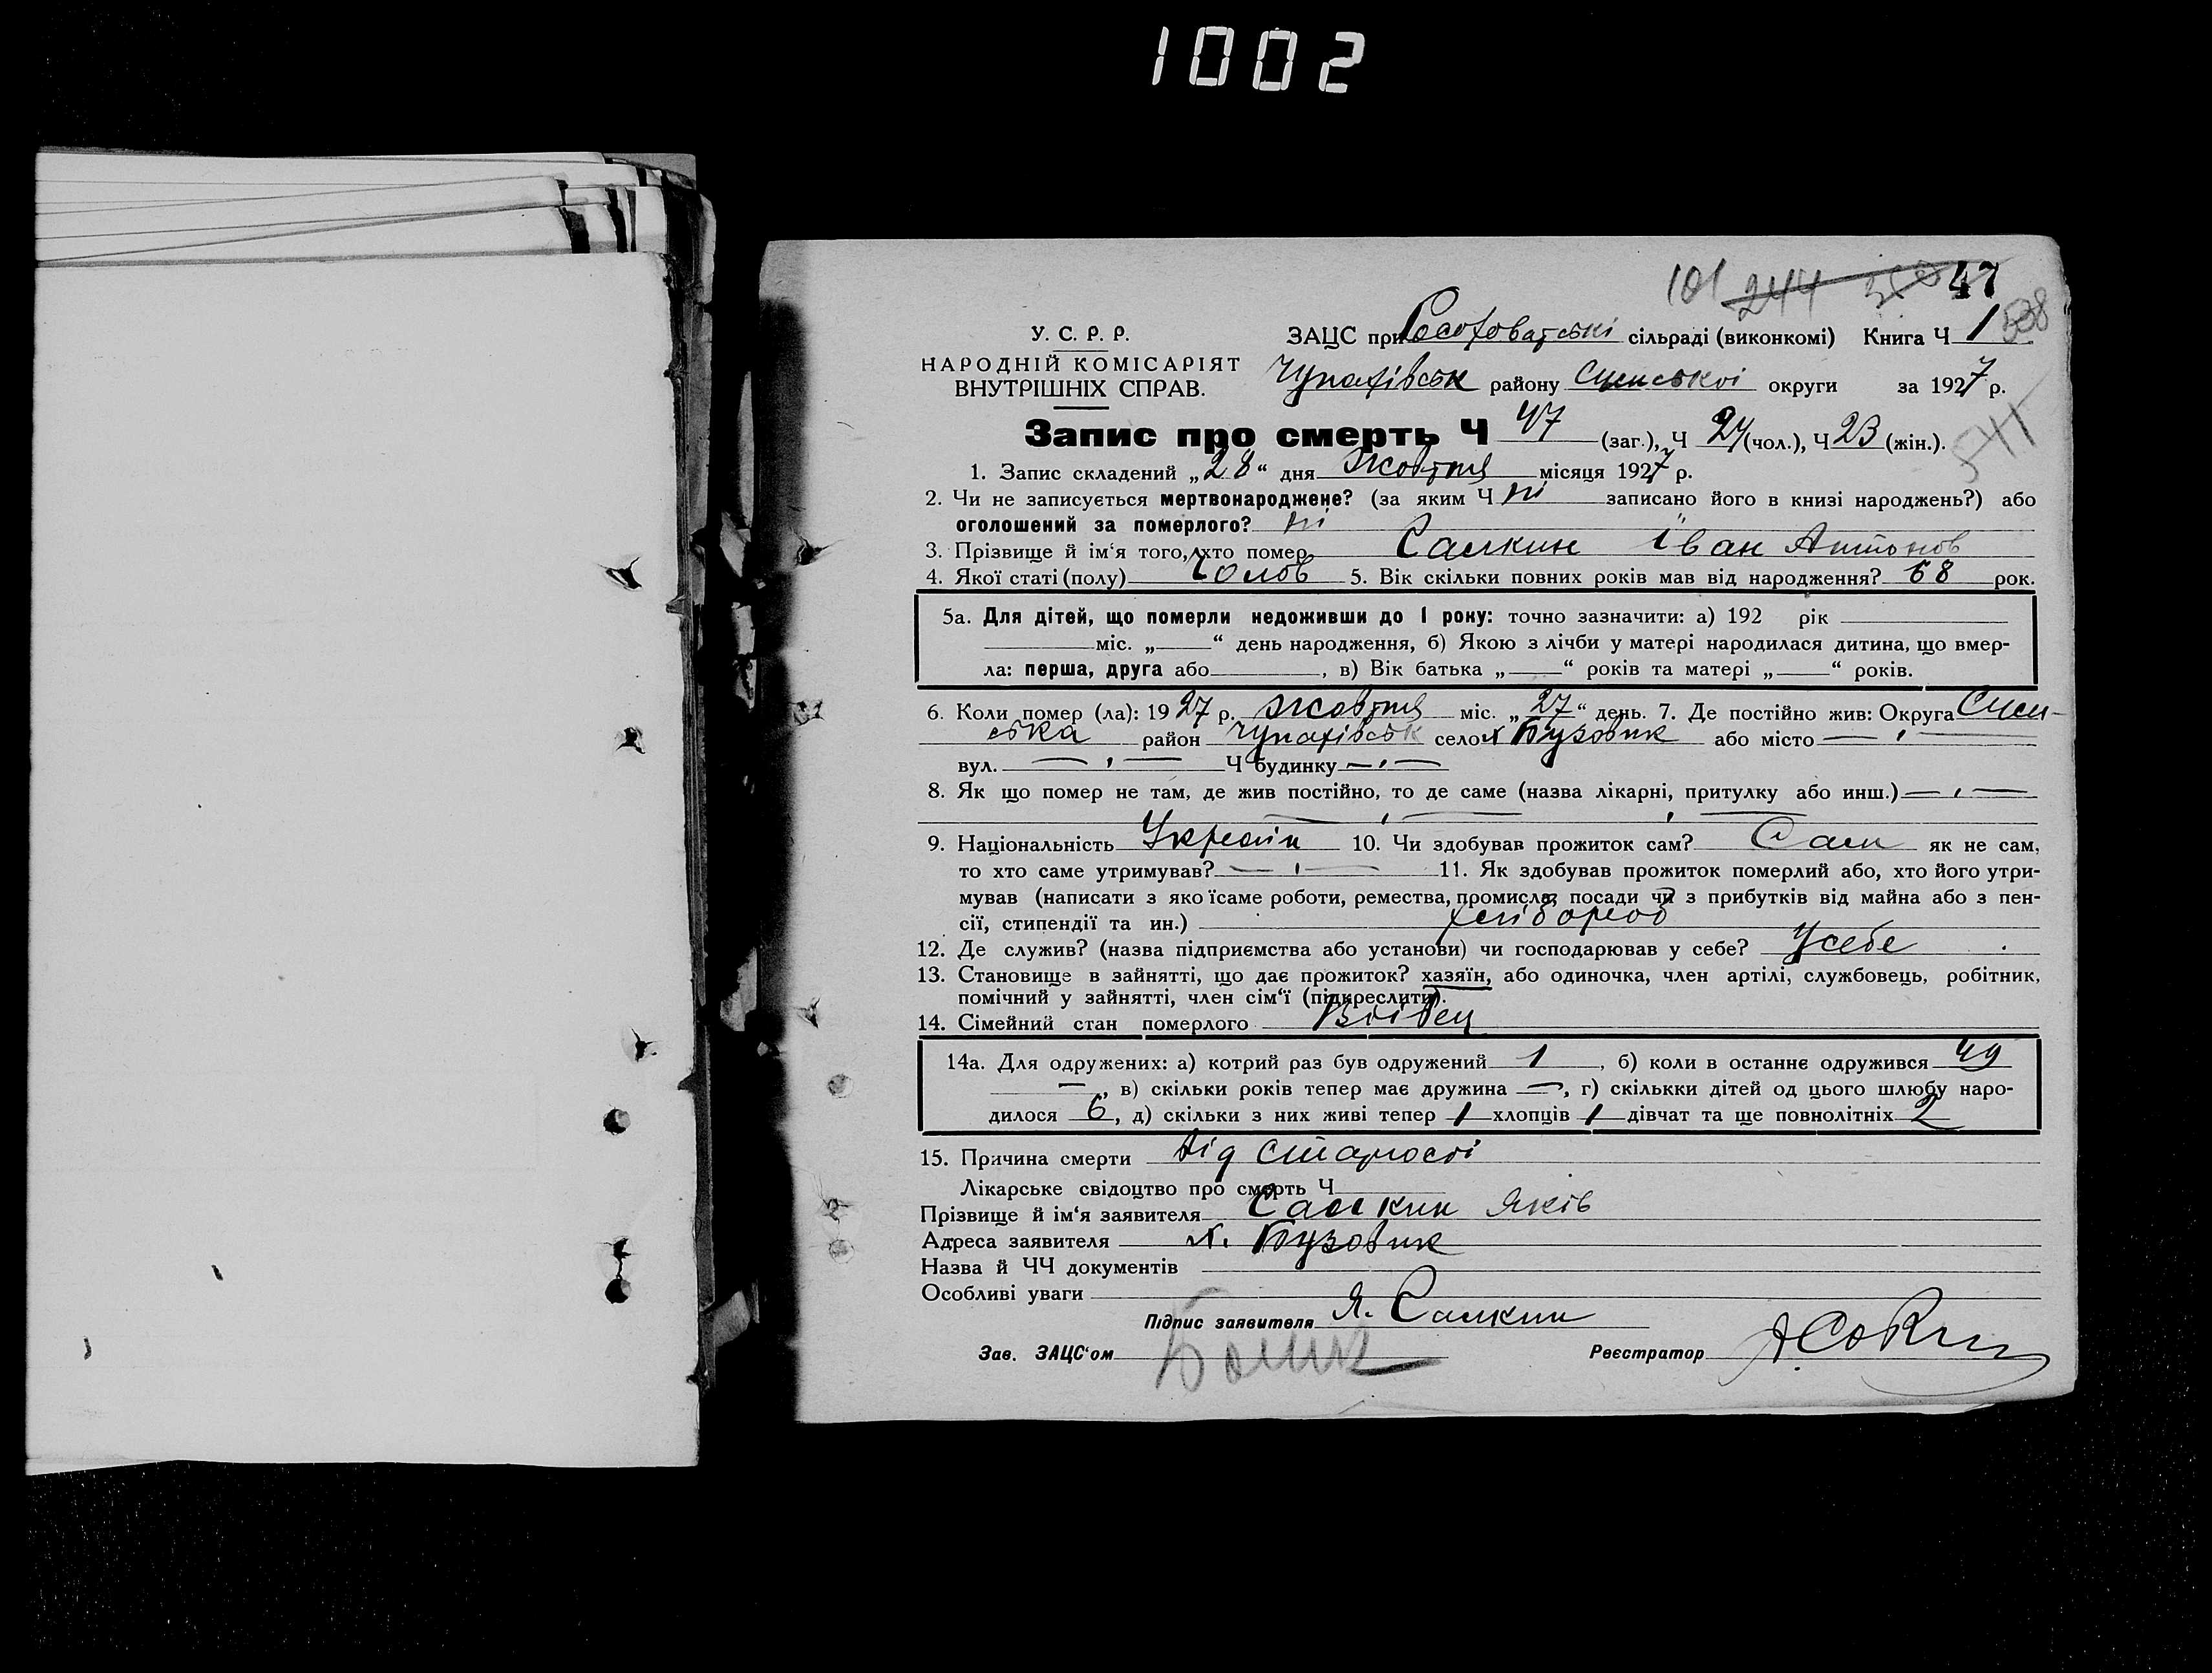 1002
101 244 47
У. С. Р. Р. ЗАЦС при сільраді (виконкомі) Книга Ч 1 538
НАРОДНІЙ КОМІСАРІЯТ
ВНУТРІШНІХ СПРАВ. Чупахівськ району Сумської округи за 1927 р.
Запис про смерть Ч 47 (заг.), Ч 24 (чол.), Ч 23 (жін.). 541
1. Запис складений „28“ дня жовтня місяця 1927 р.
2. Чи не записується мертвонароджене? (за яким Ч ні записано його в книзі народжень?) або
оголошений за померлого? ні
3. Прізвище й ім‘я того, хто помер Самкин Іван Антонов
4. Якої статі (полу) Чолов 5. Вік скільки повних років мав від народження? 68 рок.
5а. Для дітей, що померли недоживши до 1 року: точно зазначити: а) 192 рік
міс. „ “ день народження, б) Якою з лічби у матері народилася дитина, що вмер-
ла: перша, друга або , в) Вік батька „ “ років та матері „ “ років.
6. Коли помер (ла): 1927 р. жовтня міс. „27“ день. 7. Де постійно жив: Округа Сум-
ська район Чупахівськ село х Бузовик або місто — „ —
вул. — „ — Ч будинку — „ —
8. Як що помер не там, де жив постійно, то де саме (назва лікарні, притулку або инш.) — „ —
9. Національність Україн 10. Чи здобував прожиток сам? Сам як не сам,
то хто саме утримував? — „ — 11. Як здобував прожиток померлий або, хто його утри-
мував (написати з якоїсаме роботи, ремества, промисла, посади чи з прибутків від майна або з пен-
сії, стипендії та ин.) хлібороб
12. Де служив? (назва підприємства або установи) чи господарював у себе? У себе
13. Становище в зайнятті, що дає прожиток? хазяїн, або одиночка, член артілі, службовець, робітник,
помічний у зайнятті, член сім‘ї (підкреслити).
14. Сімейний стан померлого Вдівец
14а. Для одружених: а) котрий раз був одружений 1, б) коли в останнє одружився 49
—, в) скільки років тепер має дружина —, г) скількки дітей од цього шлюбу наро-
дилося 6, д) скільки з них живі тепер 1 хлопців 1 дівчат та ще повнолітніх 2
15. Причина смерти від старості
Лікарське свідоцтво про смерть Ч
Прізвище й ім‘я заявителя Самкин Яків
Адреса заявителя х. Бузовик
Назва й ЧЧ документів
Особливі уваги
Підпис заявителя Я. Самкин
Зав. ЗАЦС‘ом Реєстратор